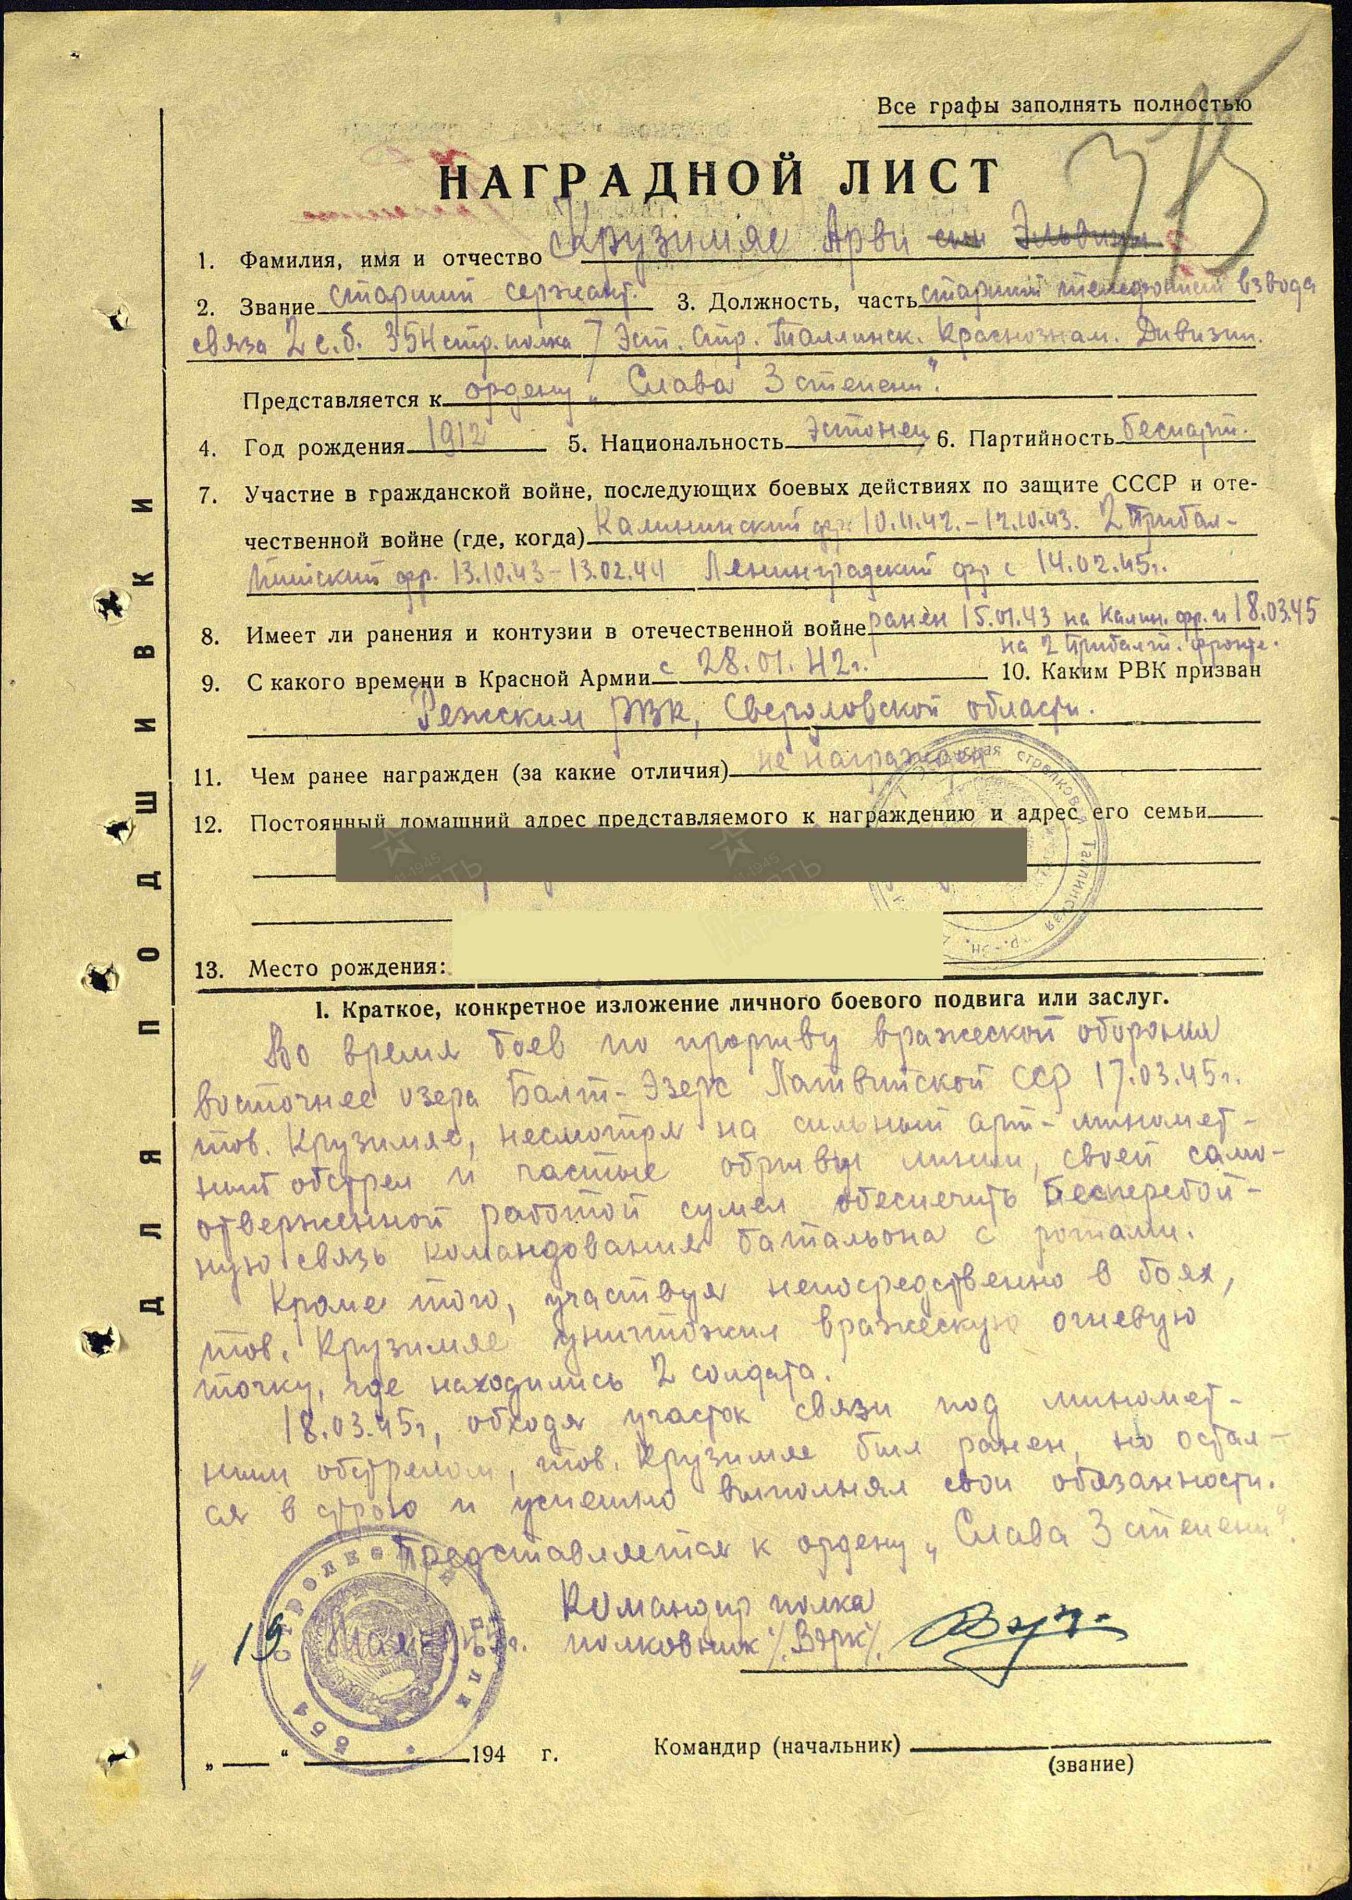 Все графы заполнять полностью
375
НАГРАДНОЙ ЛИСТ
1. Фамилия, имя и отчество Крузимяе Арви сын Эльвины
2. Звание старший сержант. 3. Должность, часть старший телефонист взвода
связи 2 с.б. 354 стр. полка 7 Эст. Стр. Таллинск. Краснознам. Дивизии.
Представляется к ордену „Слава 3 степени".
4. Год рождения 1912 5. Национальность Эстонец 6. Партийность беспарт.
7. Участие в гражданской войне, последующих боевых действиях по защите СССР и оте-
чественной войне (где, когда) Калининский фр. 10.11.42.-12.10.43. 2 Прибал-
тийский фр. 13.10.43-13.02.44 Ленинградский фр с 14.02.45г.
8. Имеет ли ранения и контузии в отечественной войне ранен 15.01.43 на Калин. фр. и 18.03.45
на 2 Прибалт. фронте.
9. С какого времени в Красной Армии с 28.01.42г. 10. Каким РВК призван
Режским РВК, Свердловской области.
11. Чем ранее награжден (за какие отличия) не награжден
12. Постоянный домашний адрес представляемого к награждению и адрес его семьи
13. Место рождения:
I. Краткое, конкретное изложение личного боевого подвига или заслуг.
Во время боев по прорыву вражеской обороны
восточнее озера Балт-Эзерс Латвийской ССР 17.03.45г.
тов. Крузимяе, несмотря на сильный арт-миномет-
ный обстрел и частые обрывы линии, своей само-
отверженной работой сумел обеспечить бесперебой-
ную связь командования батальона с ротами.
Кроме того, участвуя непосредственно в боях,
тов. Крузимяе уничтожил вражескую огневую
точку, где находились 2 солдата.
18.03.45г, обходя участок связи под миномет-
ным обстрелом, тов. Крузимяе был ранен, но остал-
ся в строю и успешно выполнял свои обязанности.
Представляется к ордену „Слава 3 степени".
Командир полка
19 Мар г. полковник /Вырк/.
354 стрелковый полк
„ “ 194 г. Командир (начальник)
(звание)
ДЛЯ ПОДШИВКИ